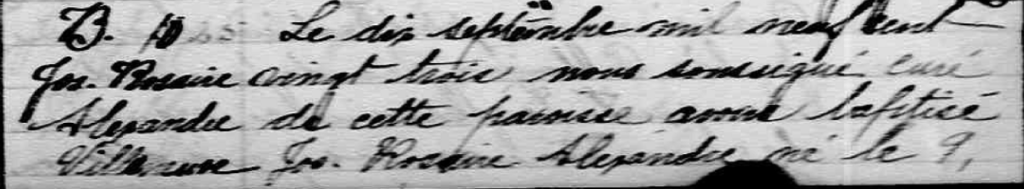 B. 10 Le dix septembre mil neuf cent
Jos. Rosaire vingt trois nous soussigné curé
Alexandre de cette paroisse avons baptisé
Villeneuve Jos. Rosaire Alexandre né le 9,